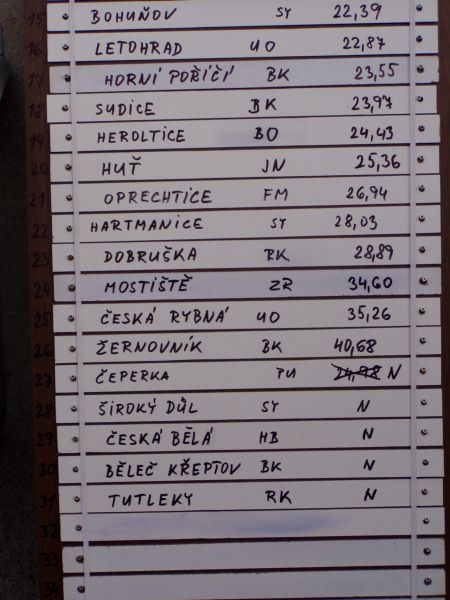 15 BOHUŇOV SY 22,39
16 LETOHRAD UO 22,87
17 HORNÍ POŘÍČÍ BK 23,55
18 SUDICE BK 23,97
19 HEROLTICE BO 24,43
20 HUŤ JN 25,36
21 OPRECHTICE FM 26,94
22 HARTMANICE SY 28,03
23 DOBRUŠKA RK 28,89
24 MOSTIŠTĚ ZR 34,60
25 ČESKÁ RYBNÁ UO 35,26
26 ŽERNOVNÍK BK 40,68
27 ČEPERKA PU 24,98 N
28 ŠIROKÝ DŮL SY N
29 ČESKÁ BĚLÁ HB N
30 BĚLEČ KŘEPTOV BK N
31 TUTLEKY RK N
32
33
34